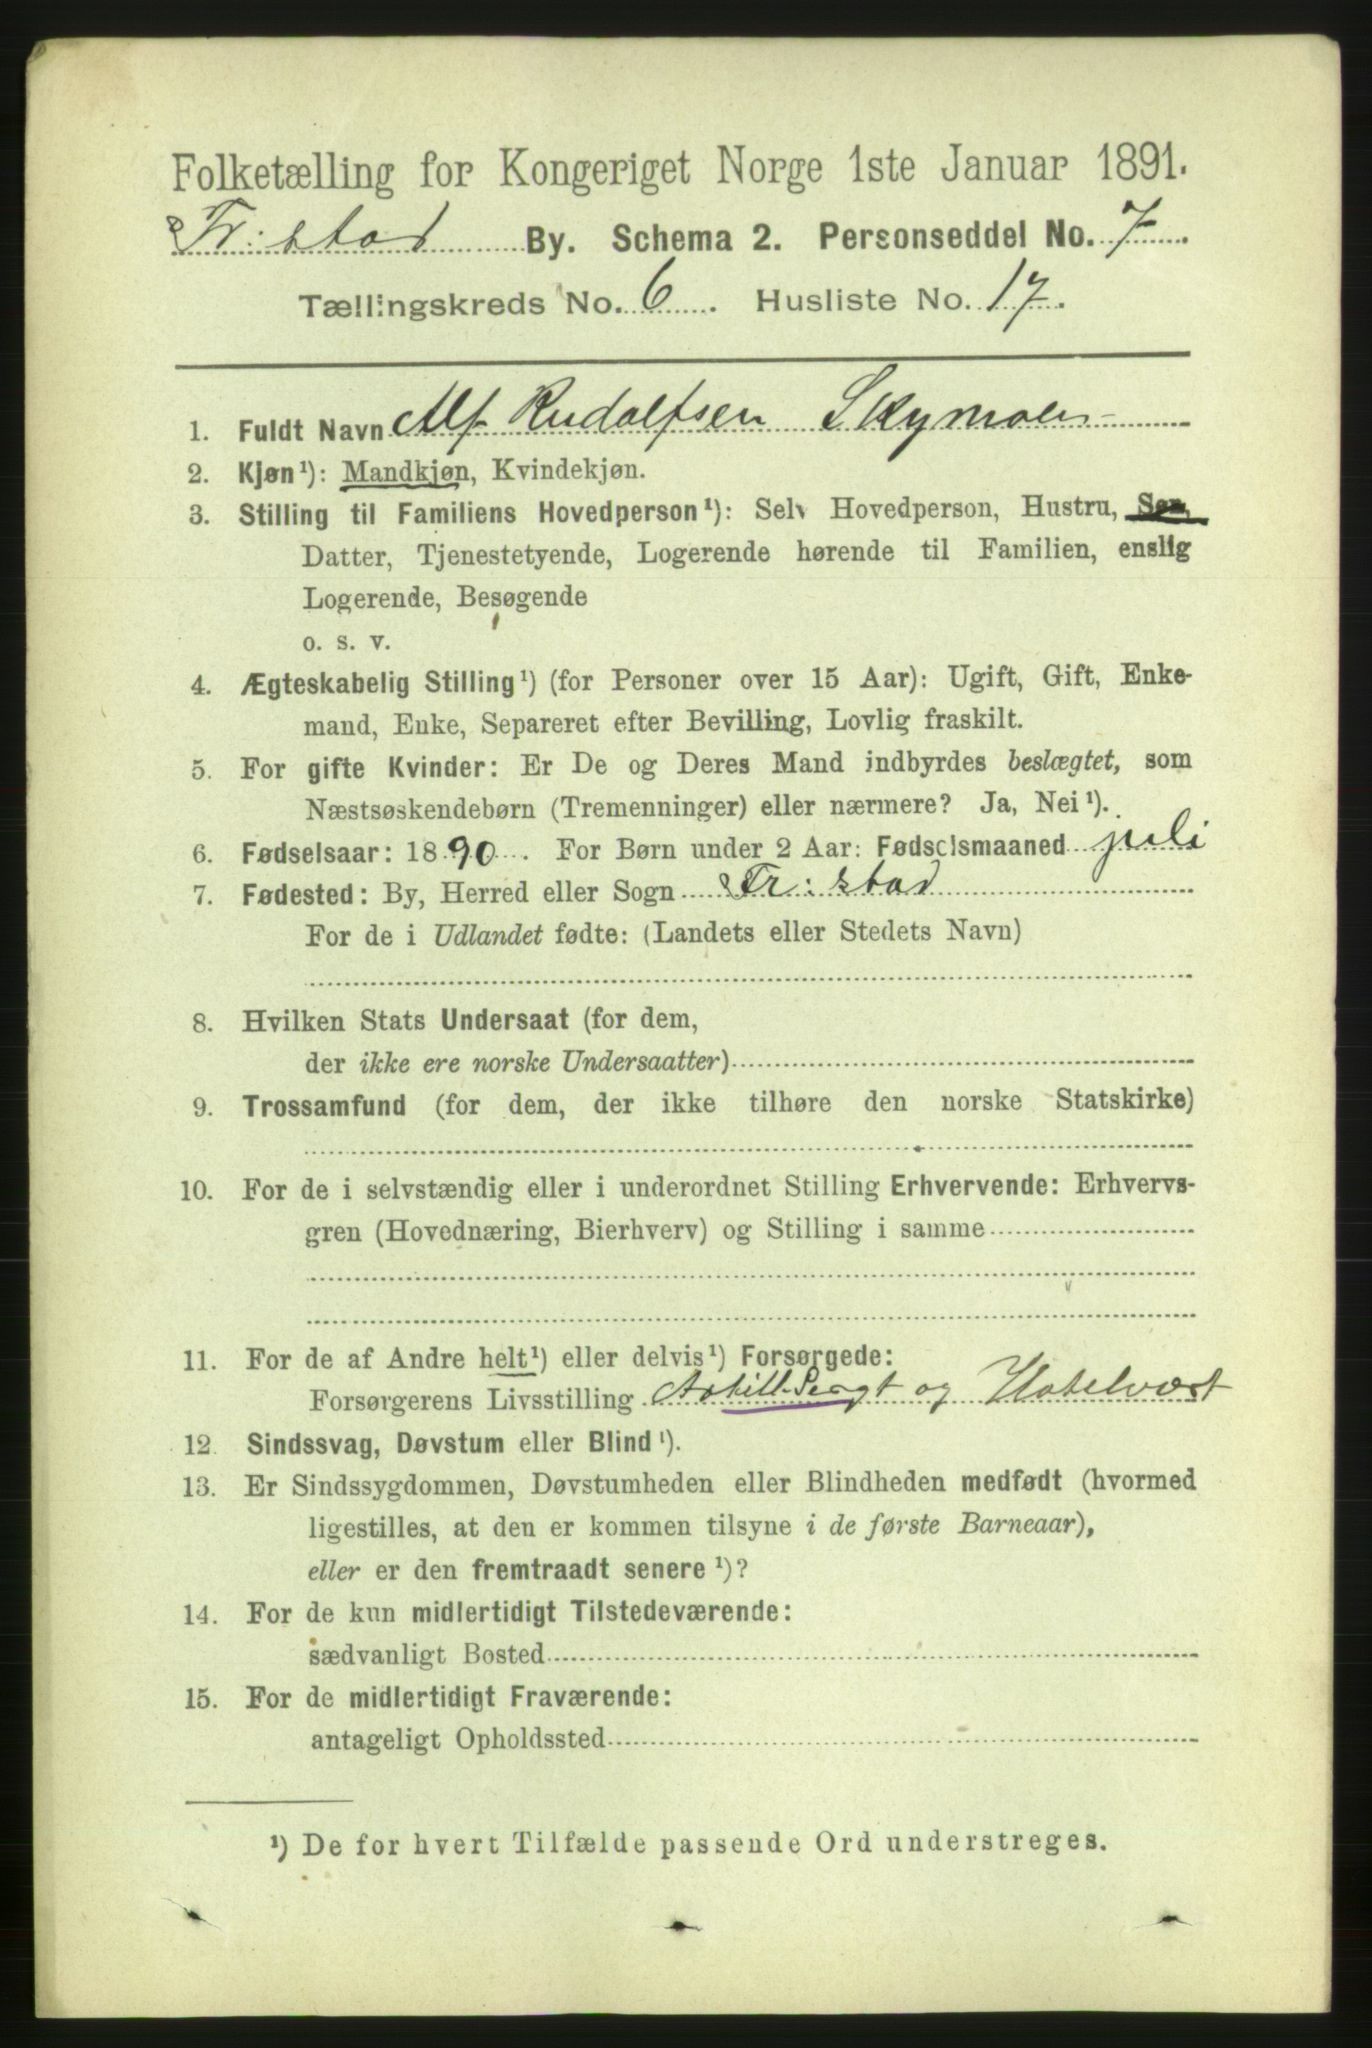 Folketælling for Kongeriget Norge 1ste Januar 1891.
Fr: stad By. Schema 2. Personseddel No. 7
Tællingskreds No. 6. Husliste No. 17.
1. Fuldt Navn Alf Rudolfsen Skymoen
2. Kjøn¹): Mandkjøn, Kvindekjøn.
3. Stilling til Familiens Hovedperson¹): Selv Hovedperson, Hustru, Søn,
Datter, Tjenestetyende, Logerende hørende til Familien, enslig
Logerende, Besøgende
o. s. v.
4. Ægteskabelig Stilling¹) (for Personer over 15 Aar): Ugift, Gift, Enke-
mand, Enke, Separeret efter Bevilling, Lovlig fraskilt.
5. For gifte Kvinder: Er De og Deres Mand indbyrdes beslægtet, som
Næstsøskendebørn (Tremenninger) eller nærmere? Ja, Nei¹).
6. Fødselsaar: 1890. For Børn under 2 Aar: Fødselsmaaned juli
7. Fødested: By, Herred eller Sogn Fr: stad
For de i Udlandet fødte: (Landets eller Stedets Navn)
8. Hvilken Stats Undersaat (for dem,
der ikke ere norske Undersaatter)
9. Trossamfund (for dem, der ikke tilhøre den norske Statskirke)
10. For de i selvstændig eller i underordnet Stilling Erhvervende: Erhvervs-
gren (Hovednæring, Bierhverv) og Stilling i samme
11. For de af Andre helt¹) eller delvis¹) Forsørgede:
Forsørgerens Livsstilling Artill. Sergt og Hotelvært
12 Sindssvag, Døvstum eller Blind¹).
13. Er Sindssygdommen, Døvstumheden eller Blindheden medfødt (hvormed
ligestilles, at den er kommen tilsyne i de første Barneaar),
eller er den fremtraadt senere¹)?
14. For de kun midlertidigt Tilstedeværende:
sædvanligt Bosted
15. For de midlertidigt Fraværende:
antageligt Opholdssted
¹) De for hvert Tilfælde passende Ord understreges.